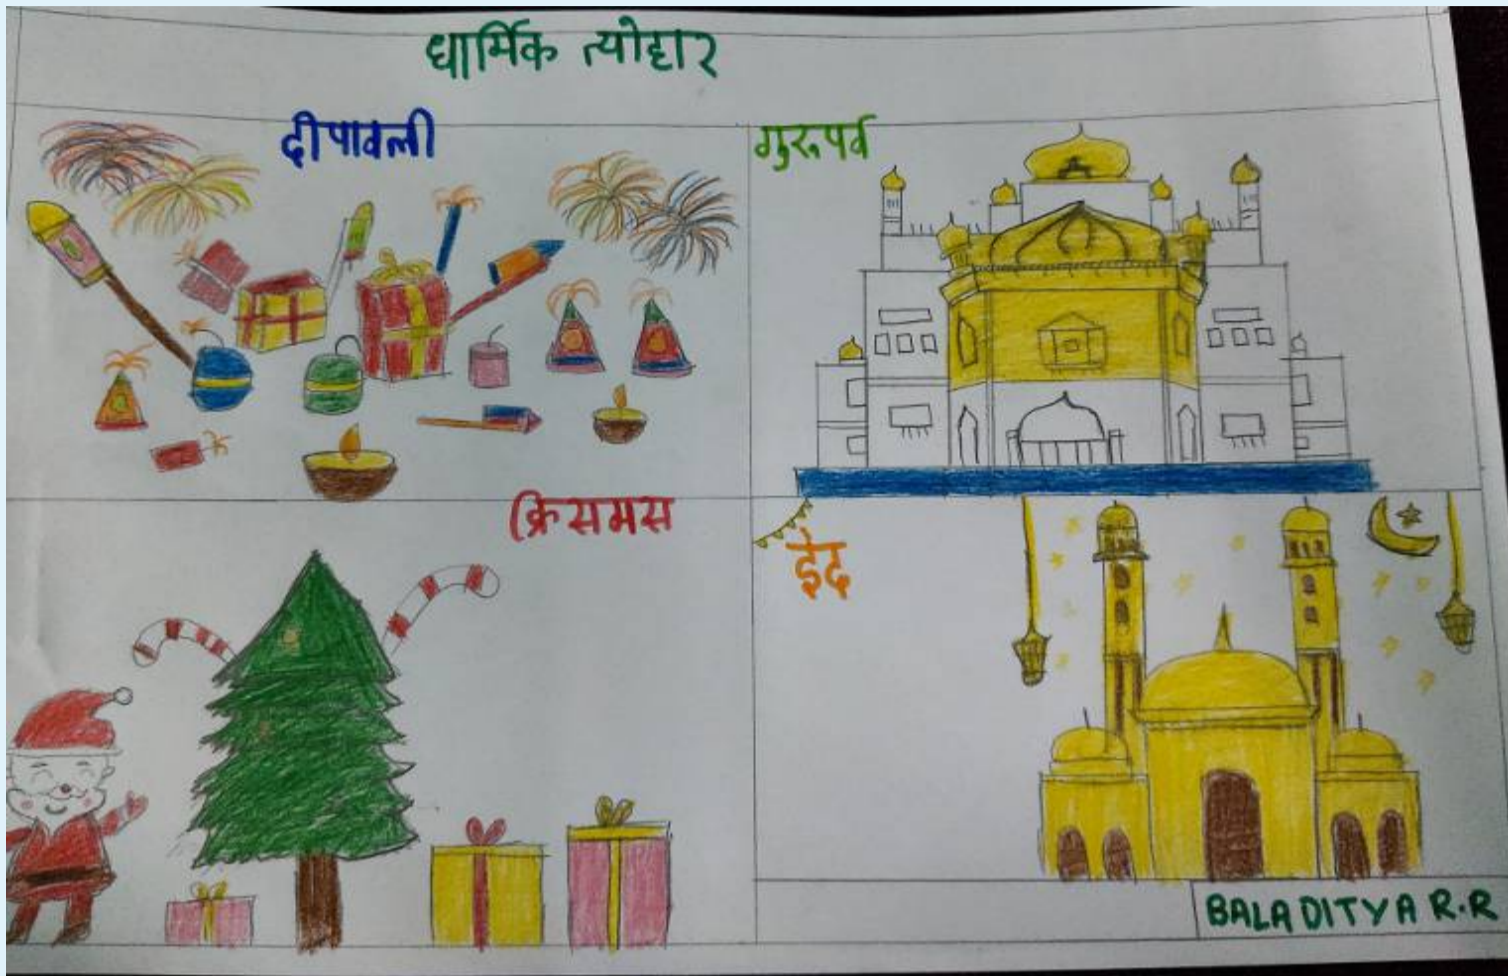 धार्मिक त्योहार
दीपावली
गुरुपर्व
क्रिसमस
ईद
BALADITYA R.R